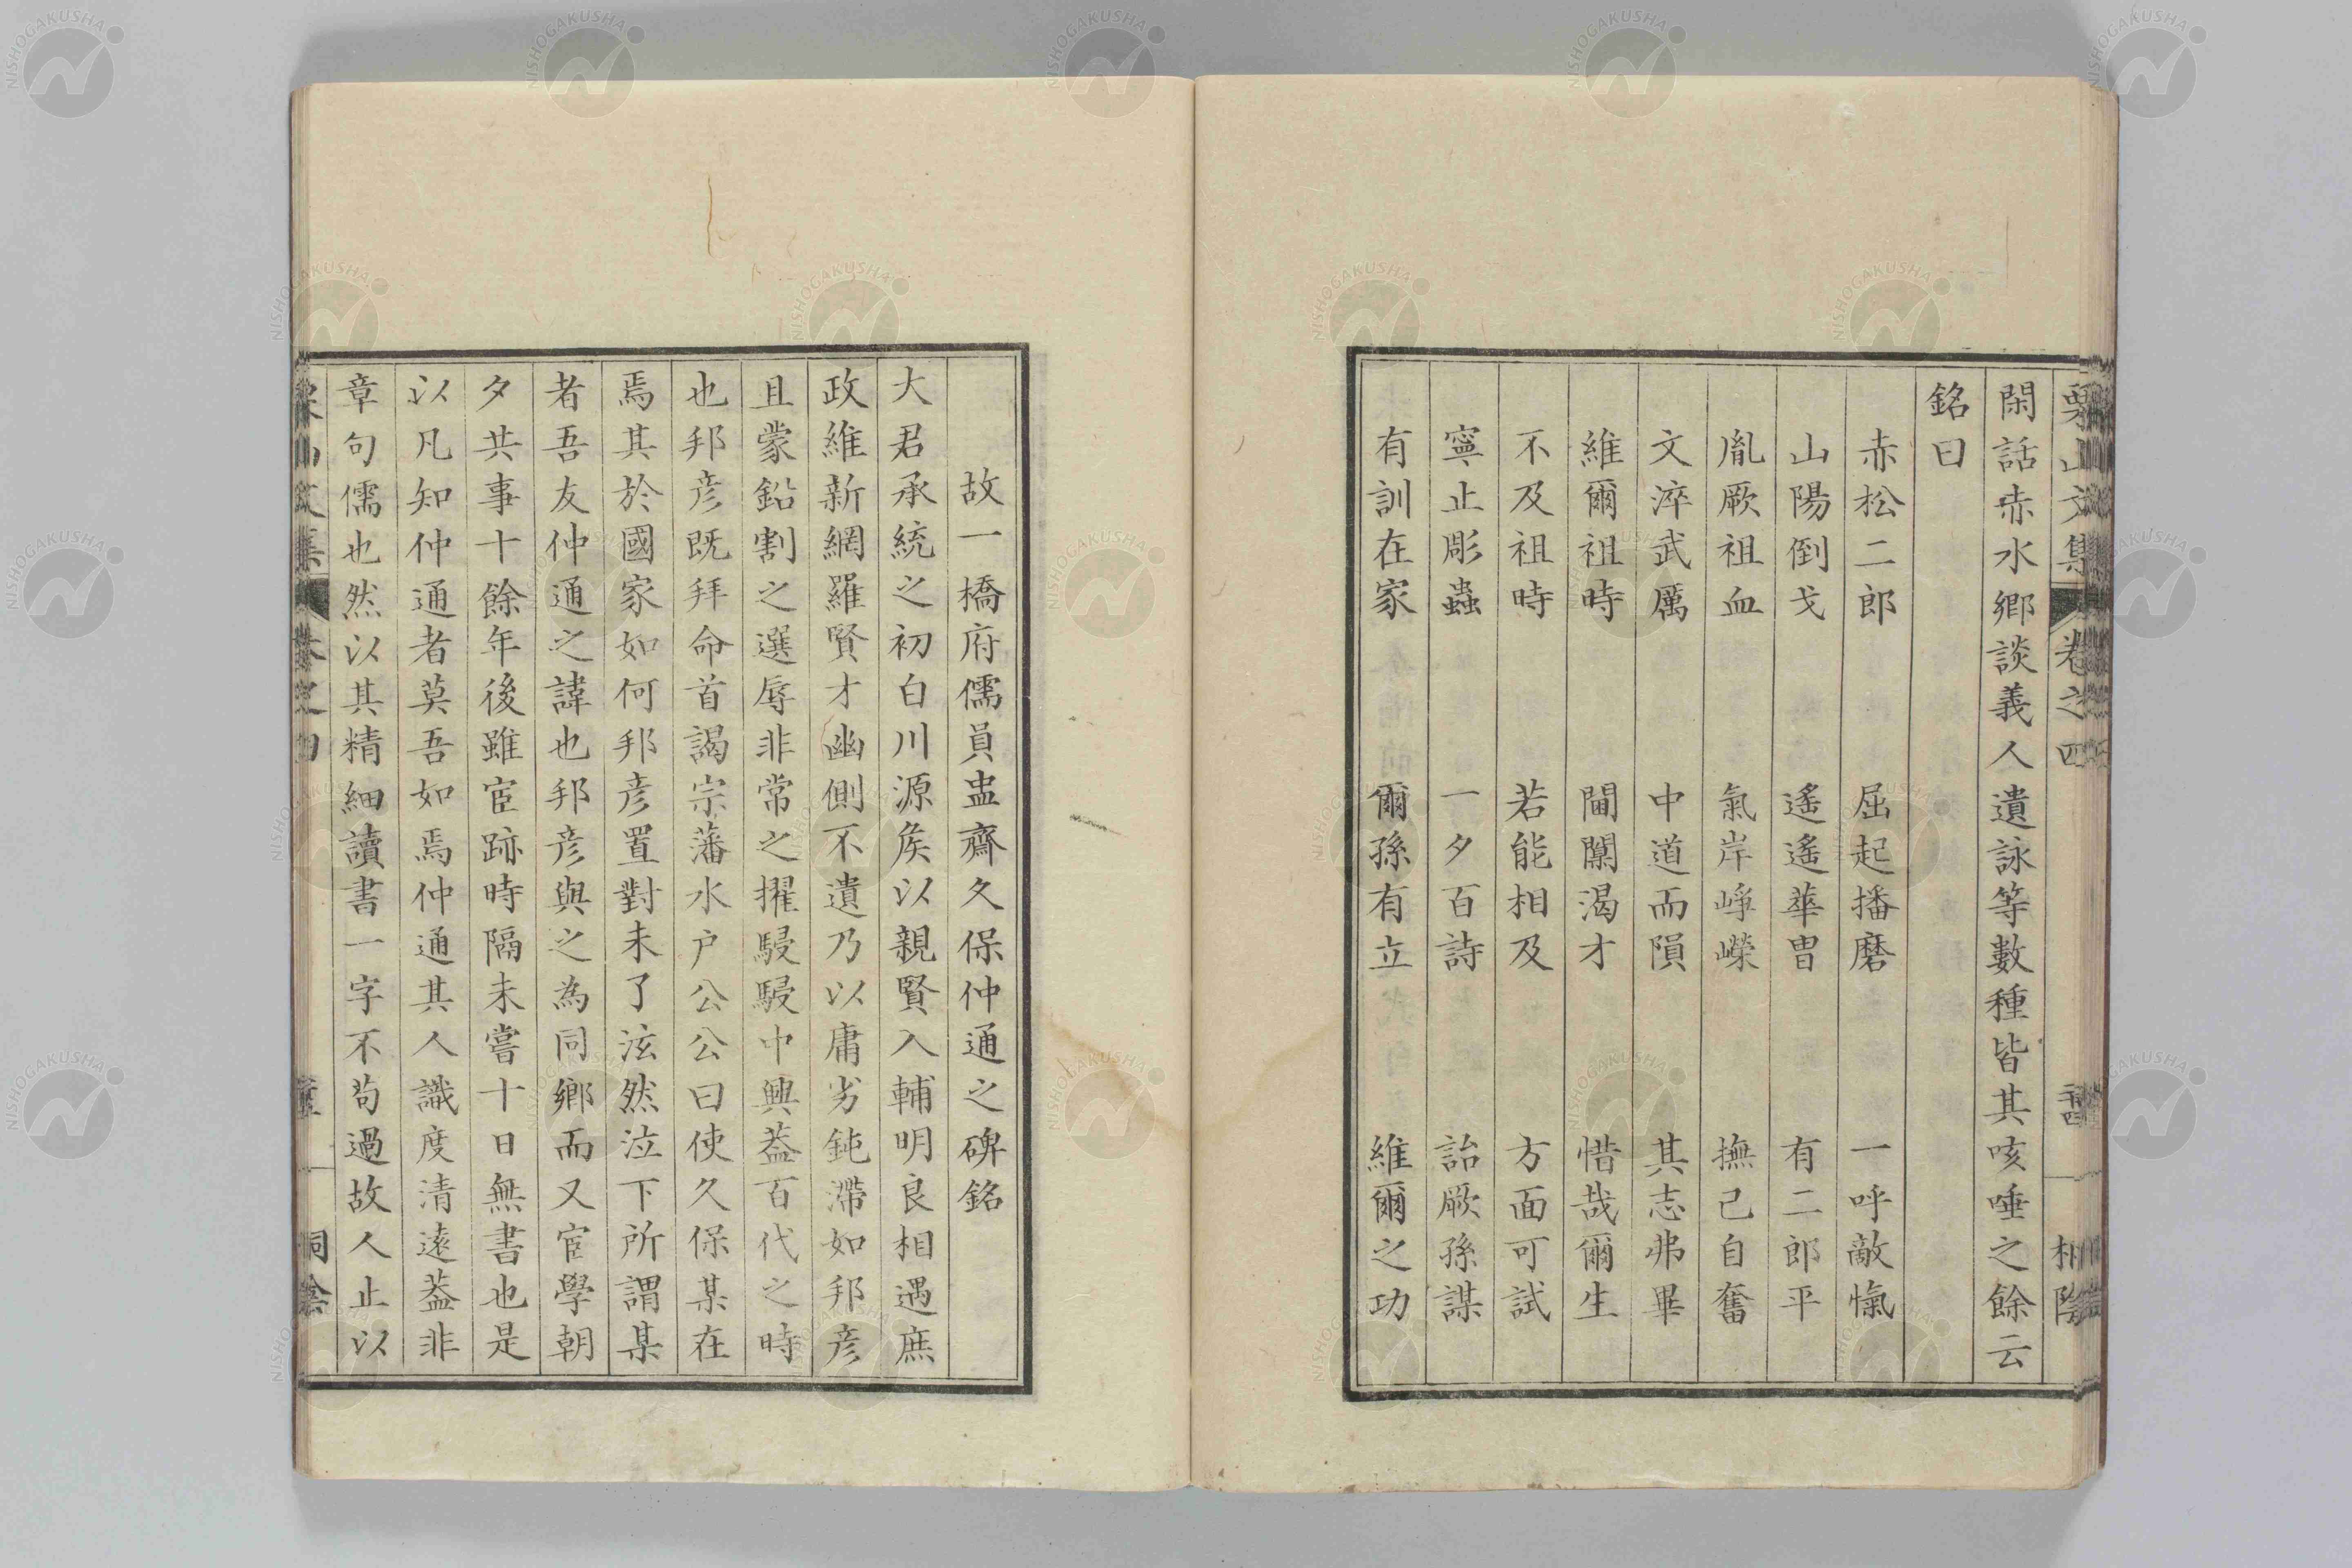 栗山文集 卷之四 二十四 桐陰
閑話赤水鄉談義人遺詠等數種皆其咳唾之餘云
銘曰
赤松二郎 屈起播磨 一呼敵愾
山陽倒戈 遙遙華冑 有二郎平
胤厥祖血 氣岸崢嶸 撫己自奮
文淬武厲 中道而隕 其志弗畢
維爾祖時 閫闑渴才 惜哉爾生
不及祖時 若能相及 方面可試
寧止彫蟲 一夕百詩 詒厥孫謀
有訓在家 爾孫有立 維爾之功
故一橋府儒員盅齋久保仲通之碑銘
大君承統之初白川源矦以親賢入輔明良相遇庶
政維新網羅賢才幽側不遺乃以庸劣鈍滯如邦彥
且蒙鉛割之選辱非常之擢駸駸中興蓋百代之時
也邦彥既拜命首謁宗藩水戶公公曰使久保某在
焉其於國家如何邦彥置對未了泫然泣下所謂某
者吾友仲通之諱也邦彥與之為同鄉而又宦學朝
夕共事十餘年後雖宦跡時隔未嘗十日無書也是
以凡知仲通者莫吾如焉仲通其人識度清遠蓋非
章句儒也然以其精細讀書一字不苟過故人止以
栗山文集 卷之四 桐陰
NISHOGAKUSHA